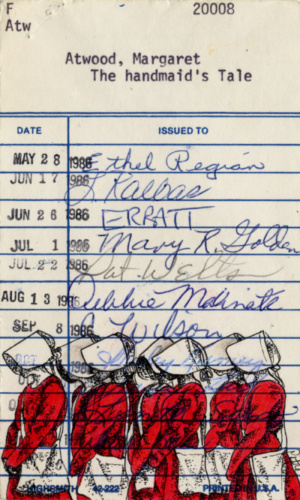 F 20008
Atw
Atwood, Margaret
The handmaid's Tale
DATE ISSUED TO
MAY 28 1986 Ethel Regian
JUN 17 1986 L Kalbas
JUN 26 1986 ERRATT
JUL 1 1986 Mary R. Golden
JUL 22 1986 Pat Wells
AUG 13 1986 Debbie
SEP 8 1986 Wilson
OCT 1986
OCT
HIGHSMITH 42-222 PRINTED IN U.S.A.